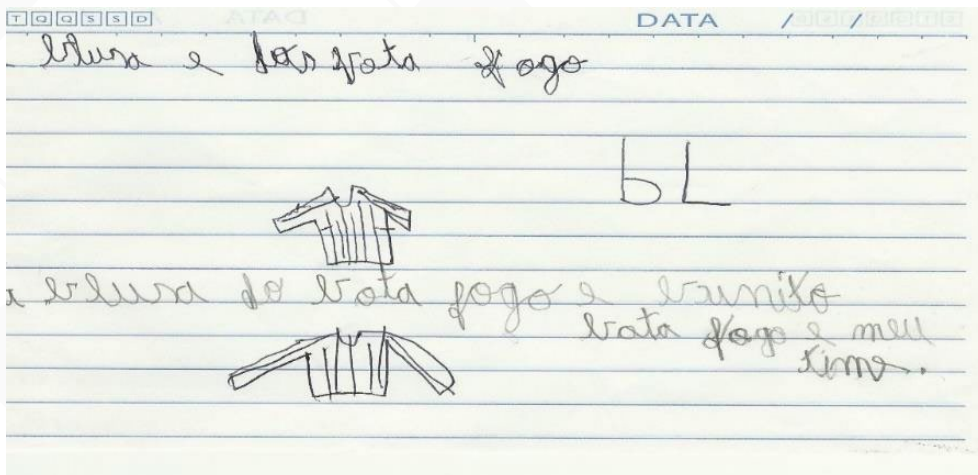 T Q Q S S D DATA / /
blusa e do bota fogo
bL
a blusa do bota fogo e bunito
bota fogo e meu
time.